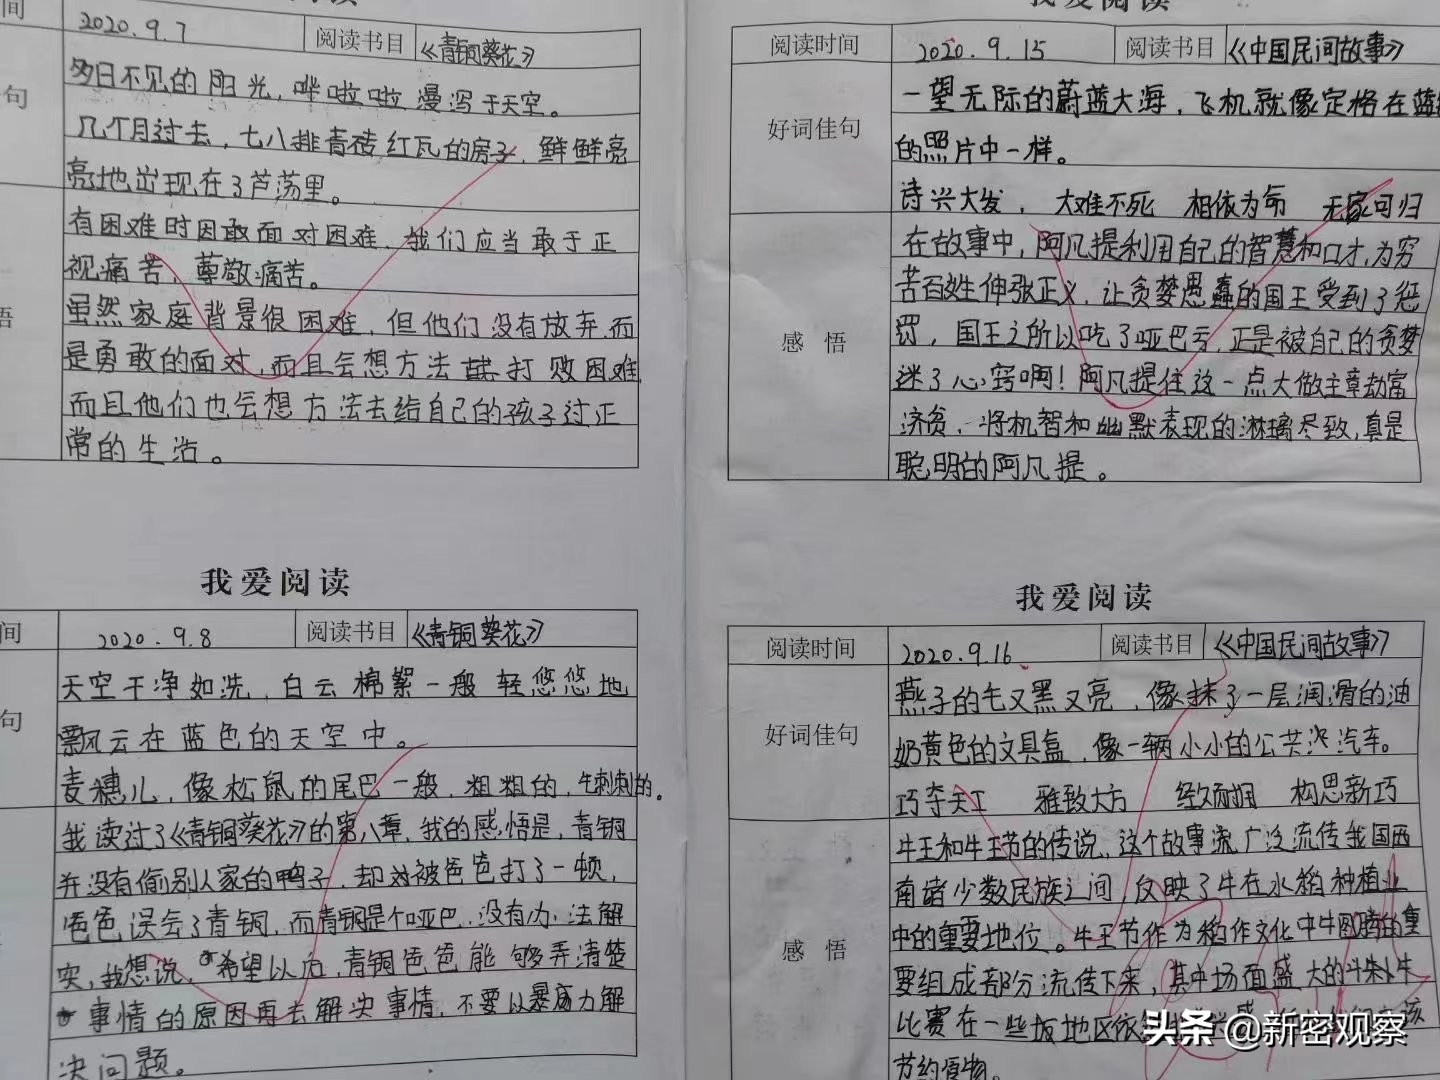 我爱阅读
间 2020.9.7 阅读书目 《青铜葵花》
句
多日不见的阳光，哗啦啦漫泻于天空。
几个月过去，七八排青砖红瓦的房子，鲜鲜亮
亮地出现在了芦荡里。
悟
有困难时因敢面对困难，我们应当敢于正
视痛苦，尊敬痛苦。
虽然家庭背景很困难，但他们没有放弃，而
是勇敢的面对，而且会想方法去打败困难
而且他们也会想方法去给自己的孩子过正
常的生活。
我爱阅读
间 2020.9.8 阅读书目 《青铜葵花》
句
天空干净如洗，白云棉絮一般轻悠悠地
飘云在蓝色的天空中。
麦穗儿，像松鼠的尾巴一般，粗粗的，毛刺刺的。
我读过了《青铜葵花》的第八章，我的感悟是，青铜
并没有偷别人家的鸭子，却对被爸爸打了一顿，
爸爸误会了青铜，而青铜是个哑巴，没有办法解
实，我想说，希望以后，青铜爸爸能够弄清楚
事情的原因再去解决事情，不要以暴力解
决问题。
我爱阅读
阅读时间 2020.9.15 阅读书目 《中国民间故事》
好词佳句
一望无际的蔚蓝大海，飞机就像定格在蓝
的照片中一样。
诗兴大发， 大难不死 相依为命 无家可归
感悟
在故事中，阿凡提利用自己的智慧和口才，为穷
苦百姓伸张正义，让贪婪愚蠢的国王受到了惩
罚，国王之所以吃了哑巴亏，正是被自己的贪婪
迷了心窍啊！阿凡提住这一点大做主章劫富
济贫，将机智和幽默表现的淋漓尽致，真是
聪明的阿凡提。
我爱阅读
阅读时间 2020.9.16 阅读书目 《中国民间故事》
好词佳句
燕子的毛又黑又亮，像抹了一层润滑的油
奶黄色的文具盒，像一辆小小的公共汽车。
巧夺天工 雅致大方 构思新巧
感悟
牛王和牛王节的传说，这个故事广泛流传我国西
南诸少数民族之间，反映了牛在水稻种植业
中的重要地位。牛王节作为稻作文化中牛图腾的重
要组成部分流传下来，其中场面盛大的斗牛
比赛在一些坂地区依
节约食物。
头条@新密观察